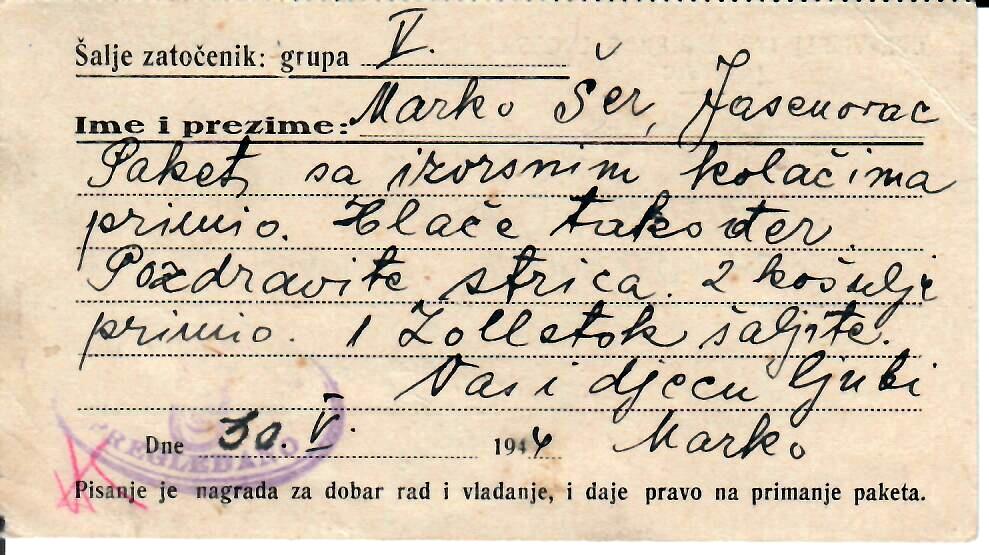 Šalje zatočenik: grupa V.
Ime i prezime: Marko Šer, Jasenovac
Paket sa izvrsnim kolačima
primio. Hlače također.
Pozdravite strica. 2 košulje
primio. 1 Zolletok šaljite.
Vas i djecu ljubi
Dne 30. V. 1944 Marko
PREGLEDANO
Pisanje je nagrada za dobar rad i vladanje, i daje pravo na primanje paketa.